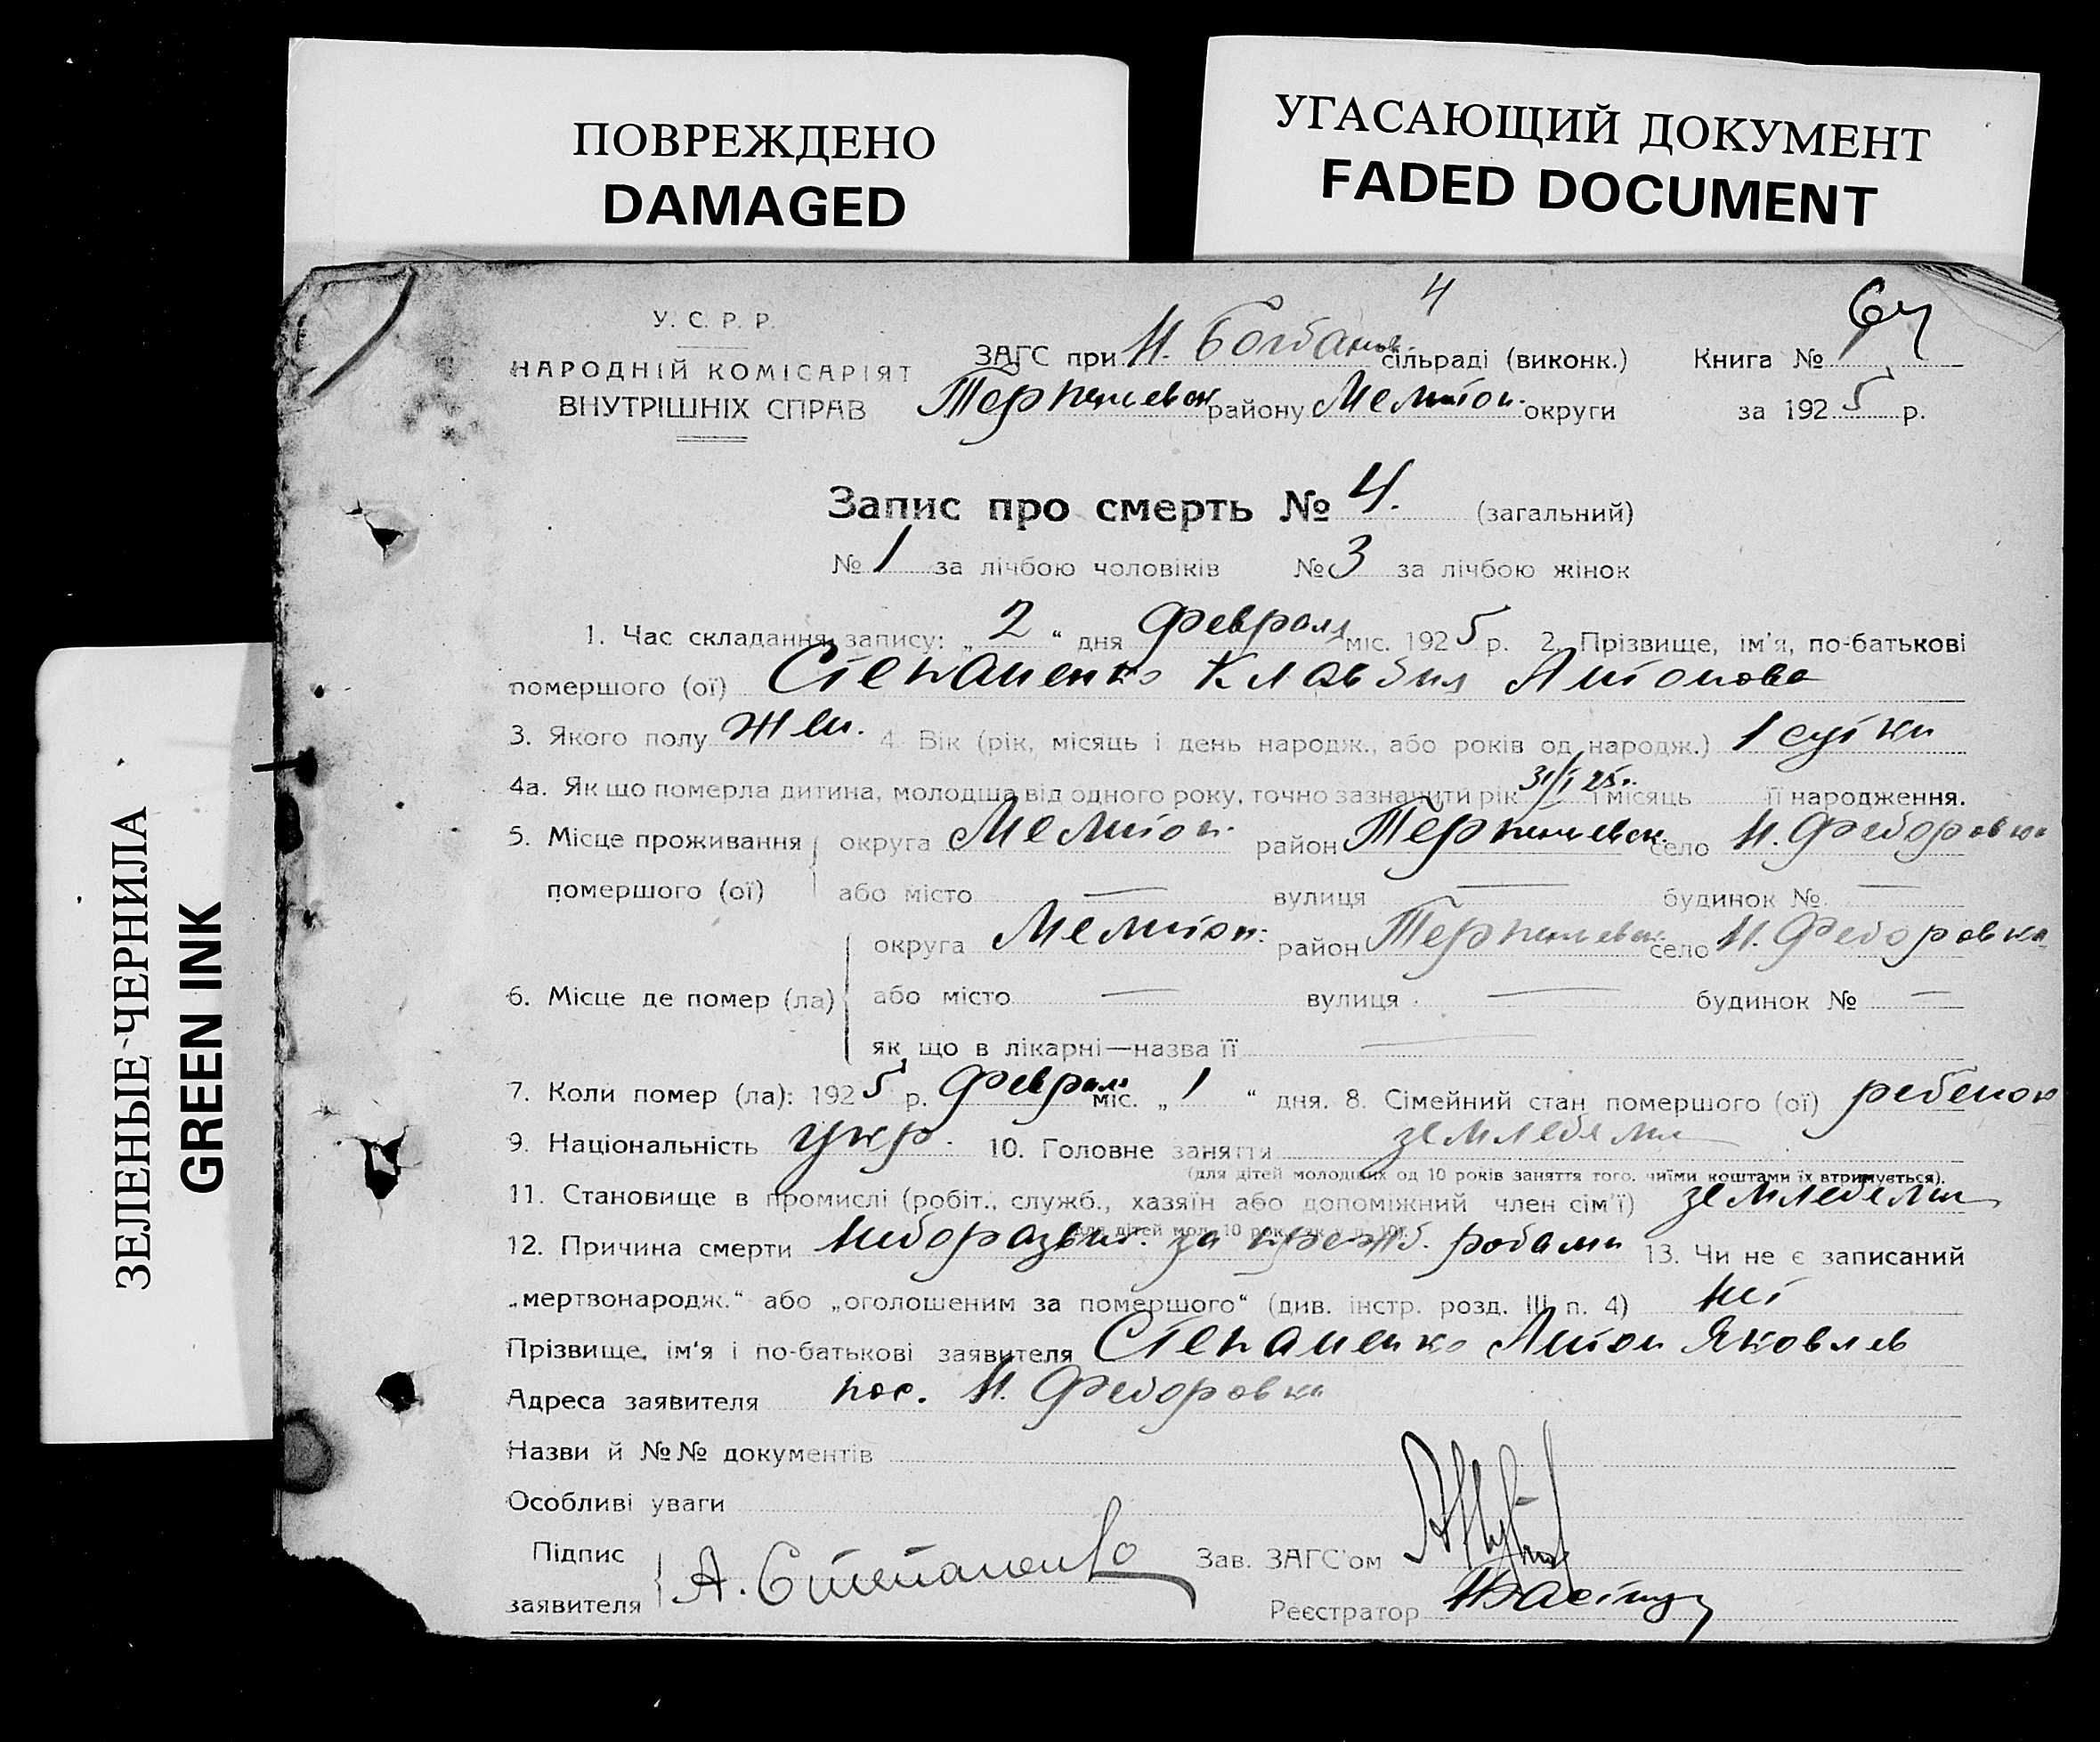 ПОВРЕЖДЕНО
DAMAGED
УГАСАЮЩИЙ ДОКУМЕНТ
FADED DOCUMENT
ЗЕЛЕНЫЕ ЧЕРНИЛА
GREEN INK
4
У. С. Р. Р.
НАРОДНІЙ КОМІСАРІЯТ
ВНУТРІШНІХ СПРАВ
ЗАГС при Н. Богданов. сільраді (виконк.) Книга №
Терпеньевск району Мелитоп. округи за 1925 р.
Запис про смерть № 4. (загальний)
№ 1 за лічбою чоловіків № 3 за лічбою жінок
1. Час складання запису: „2“ дня Февраля міс. 1925 р. 2. Прізвище, ім'я, по-батькові
помершого (ої) Степаненко Клавдия Антонова
3. Якого полу жен. 4. Вік (рік, місяць і день народж., або років од народж.) 1 сутки
4а. Як що померла дитина, молодша від одного року, точно зазначити рік 31/I 25г. і місяць її народження.
5. Місце проживання округа Мелитоп. район Терпеньевск. село Н. Федоровка
помершого (ої) або місто — вулиця — будинок № —
округа Мелитоп. район Терпеньевск. село Н. Федоровка
6. Місце де помер (ла) або місто — вулиця — будинок № —
як що в лікарні—назва її —
7. Коли помер (ла): 1925 р. Февраля міс. „1“ дня. 8. Сімейний стан помершого (ої) ребенок
9. Національність укр. 10. Головне заняття земледелия
(для дітей молодших од 10 років заняття того, чиїми коштами їх втримується).
11. Становище в промислі (робіт., служб., хазяїн або допоміжний член сім'ї) земледелия
для дітей мол. 10 рок. як у п. 10г.
12. Причина смерти недоразвит. за прежд. родами 13. Чи не є записаний
„мертвонародж.“ або „оголошеним за помершого“ (див. інстр. розд. III п. 4) нет
Прізвище, ім'я і по-батькові заявителя Степаненко Антон Яковлев
Адреса заявителя пос. Н. Федоровка
Назви й №№ документів
Особливі уваги
Підпис
заявителя А. Степаненко Зав. ЗАГС'ом
Реєстратор